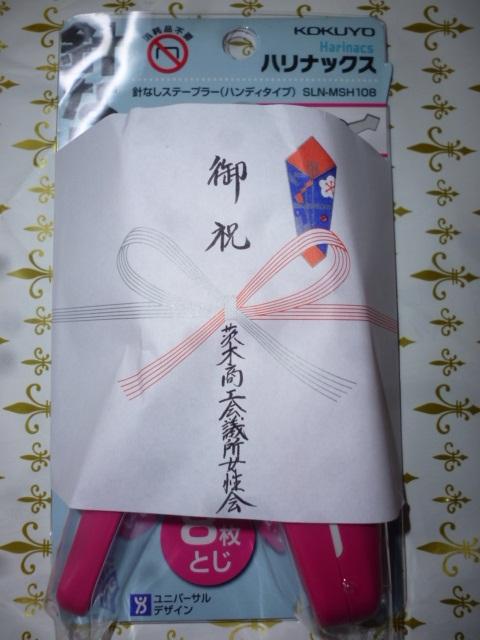 針
な
消耗品不要
KOKUYO
Harinacs
ハリナックス
針なしステープラー(ハンディタイプ) SLN-MSH108
御祝
茨木商工会議所女性会
枚
とじ
ユニバーサル
デザイン